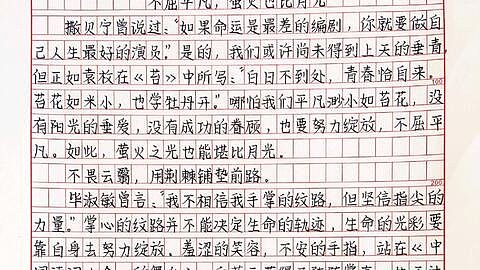 不屈平凡，萤火也比月光
撒贝宁曾说过：“如果命运是最差的编剧，你就要做自
己人生最好的演员。”是的，我们或许尚未得到上天的垂青，
但正如袁枚在《苔》中所写：“白日不到处，青春恰自来。
苔花如米小，也学牡丹开。”哪怕我们平凡渺小如苔花，没
100
有阳光的垂爱，没有成功的眷顾，也要努力绽放，不屈平
凡。如此，萤火之光也能堪比月光。
不畏云翳，用荆棘铺垫前路。
毕淑敏曾言：“我不相信我手掌的纹路，但坚信指尖的
200
力量。”掌心的纹路并不能决定生命的轨迹，生命的光彩要
靠自身去努力绽放。羞涩的笑容，不安的手指，站在《中